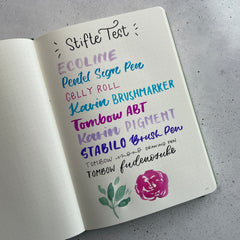 Stifte Test
ECOLINE
Pentel Sign Pen
GELLY ROLL
Karin BRUSHMARKER
Tombow ABT
Karin PIGMENT
STABILO Brush Pen
TOMBOW MONO DRAWING PEN
TOMBOW fudenosuke